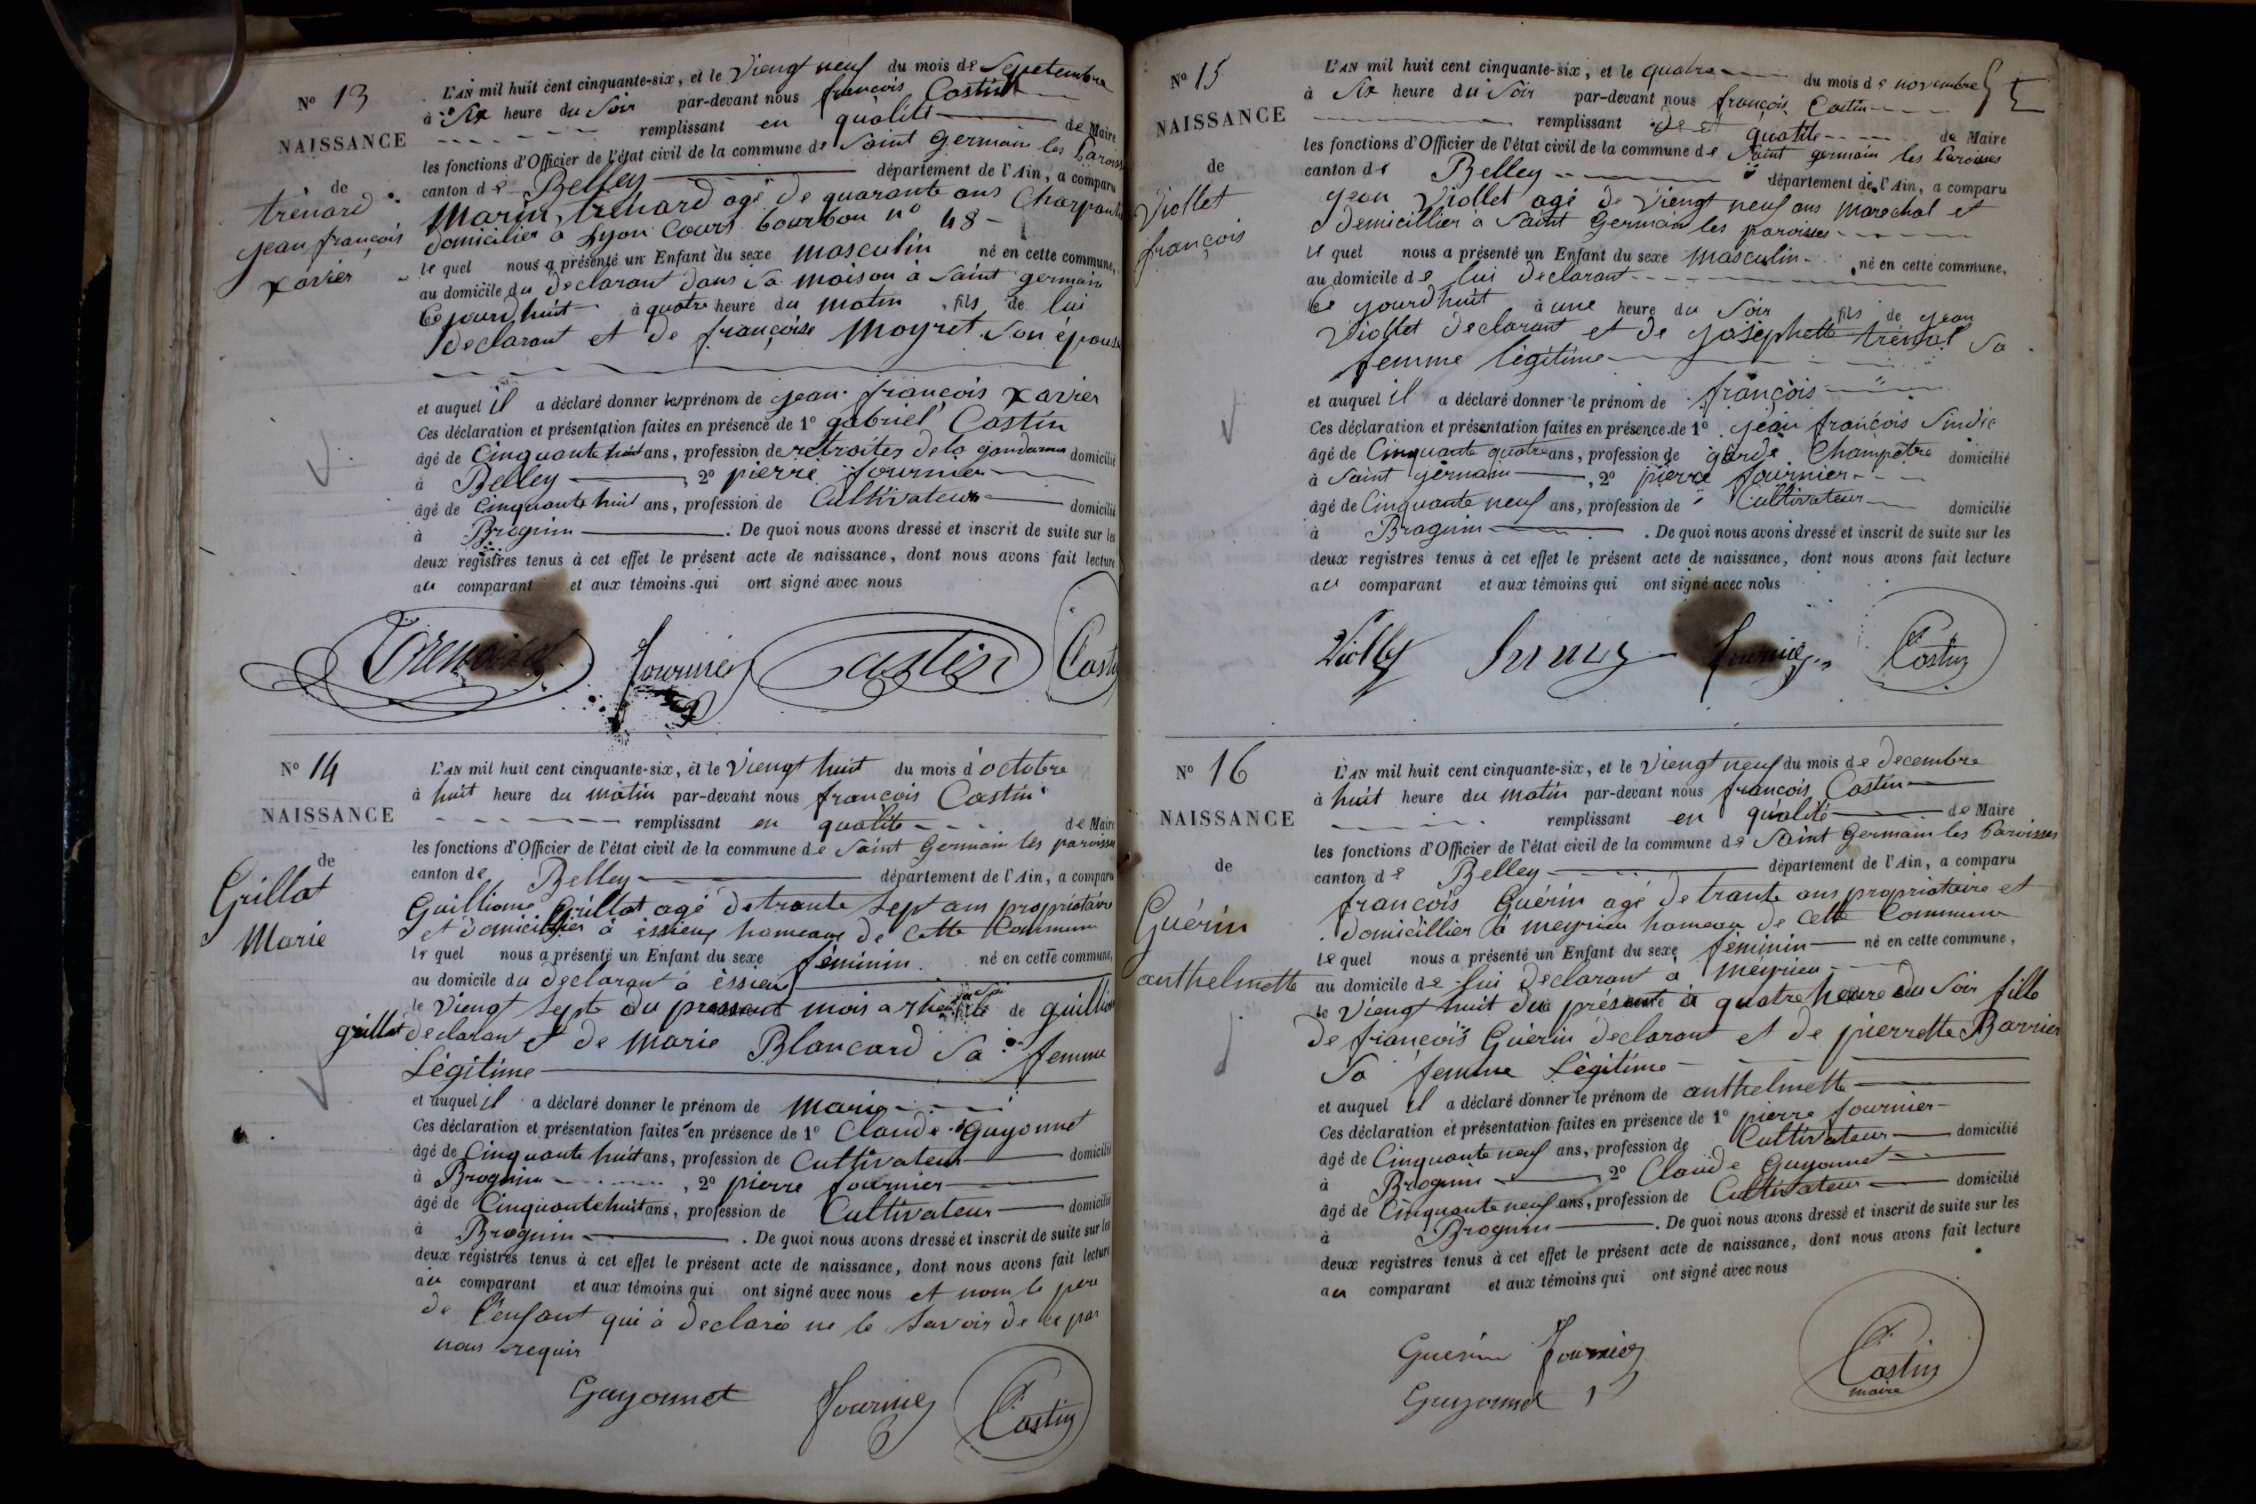 N° 13
NAISSANCE
de
trénard
jean françois
xavier
L'AN mil huit cent cinquante-six, et le Viengt neuf du mois de Septembre
à Six heure du Soir par-devant nous françois Costin
remplissant en qualité de Maire
les fonctions d'Officier de l'état civil de la commune de Saint germain les Paroiss
canton de Belley département de l'Ain, a comparu
Marin trénard agé de quarante ans Charpantier
domicilier à Lyon Cours bourbon n° 48
le quel nous a présenté un Enfant du sexe masculin né en cette commune,
au domicile du declarant dans sa maison à Saint germain
Ce jourd'huit à quatre heure du matin, fils de lui
declarant et de françoise Moyret Son épouse
et auquel il a déclaré donner les prénom de jean françois xavier
Ces déclaration et présentation faites en présence de 1° gabriel Costin
âgé de Cinquante huit ans, profession de retraites de la gandarme domicilié
à Belley, 2° pierre fournier
âgé de Cinquante huit ans, profession de Cultivateur domicilié
à Brognin. De quoi nous avons dressé et inscrit de suite sur les
deux registres tenus à cet effet le présent acte de naissance, dont nous avons fait lecture
au comparant et aux témoins qui ont signé avec nous
fournier Costin Costin
N° 14
NAISSANCE
de
Grillat
Marie
L'AN mil huit cent cinquante-six, et le Viengt huit du mois d octobre
à huit heure du matin par-devant nous françois Costin
remplissant en qualité de Maire
les fonctions d'Officier de l'état civil de la commune de Saint Germain les paroisses
canton de Belley département de l'Ain, a comparu
Guilliome Grillat agé de trante Sept ans propriétaire
et domicillier à éssieux hameaux de Cette Commune
le quel nous a présenté un Enfant du sexe féminin né en cette commune,
au domicile du declarant à éssieu
le Viengt Sept du present mois a de guilliome
grillat declarant et de Marie Blancard Sa femme
Légitime
et auquel il a déclaré donner le prénom de Marie
Ces déclaration et présentation faites en présence de 1° Claude Guyonnet
âgé de Cinquante huit ans, profession de Cultivateur domicilié
à Brognin, 2° pierre fournier
âgé de Cinquante huit ans, profession de Cultivateur domicilié
à Brognin. De quoi nous avons dressé et inscrit de suite sur les
deux registres tenus à cet effet le présent acte de naissance, dont nous avons fait lecture
au comparant et aux témoins qui ont signé avec nous et nom le pere
de l'enfant qui à declaré ne le Savoir de ce par
nous requir
Guyonnet fournier Costin
N° 15
NAISSANCE
de
Viollet
françois
L'AN mil huit cent cinquante-six, et le quatre du mois de novembre
à Six heure du Soir par-devant nous françois Costin
remplissant qualité de Maire
les fonctions d'Officier de l'état civil de la commune de Saint germain les Paroisses
canton de Belley département de l'Ain, a comparu
jean Viollet agé de Viengt neuf ans marechal et
domicillier à Saint Germain les paroisses
le quel nous a présenté un Enfant du sexe masculin né en cette commune,
au domicile de lui declarant
Ce jourd'huit à une heure du Soir fils de jean
Viollet declarant et de joséphette Sa
femme légitime
et auquel il a déclaré donner le prénom de françois
Ces déclaration et présentation faites en présence de 1° jean françois Sindic
âgé de Cinquante quatre ans, profession de garde Champêtre domicilié
à Saint germain, 2° pierre fournier
âgé de Cinquante neuf ans, profession de Cultivateur domicilié
à Brognin. De quoi nous avons dressé et inscrit de suite sur les
deux registres tenus à cet effet le présent acte de naissance, dont nous avons fait lecture
au comparant et aux témoins qui ont signé avec nous
fournier Costin
N° 16
NAISSANCE
de
Guérin
anthelmette
L'AN mil huit cent cinquante-six, et le Viengt neuf du mois de decembre
à huit heure du matin par-devant nous françois Costin
remplissant en qualité de Maire
les fonctions d'Officier de l'état civil de la commune de Saint Germain les Paroisses
canton de Belley département de l'Ain, a comparu
françois Guérin agé de trante ans propriataire et
domicillier à meyrieu hameau de Cette Commune
le quel nous a présenté un Enfant du sexe féminin né en cette commune,
au domicile de lui declarant à meyrieu
le Viengt huit du présent à quatre heure du Soir fille
de françois Guérin declarant et de pierrette Barrier
Sa femme Légitime
et auquel il a déclaré donner le prénom de anthelmette
Ces déclaration et présentation faites en présence de 1° pierre fournier
âgé de Cinquante neuf ans, profession de Cultivateur domicilié
à Brognin 2° Claude Guyonnet
âgé de Cinquante neuf ans, profession de Cultivateur domicilié
à Brognin. De quoi nous avons dressé et inscrit de suite sur les
deux registres tenus à cet effet le présent acte de naissance, dont nous avons fait lecture
au comparant et aux témoins qui ont signé avec nous
Guérin fournier
Guyonnet
Costin
maire